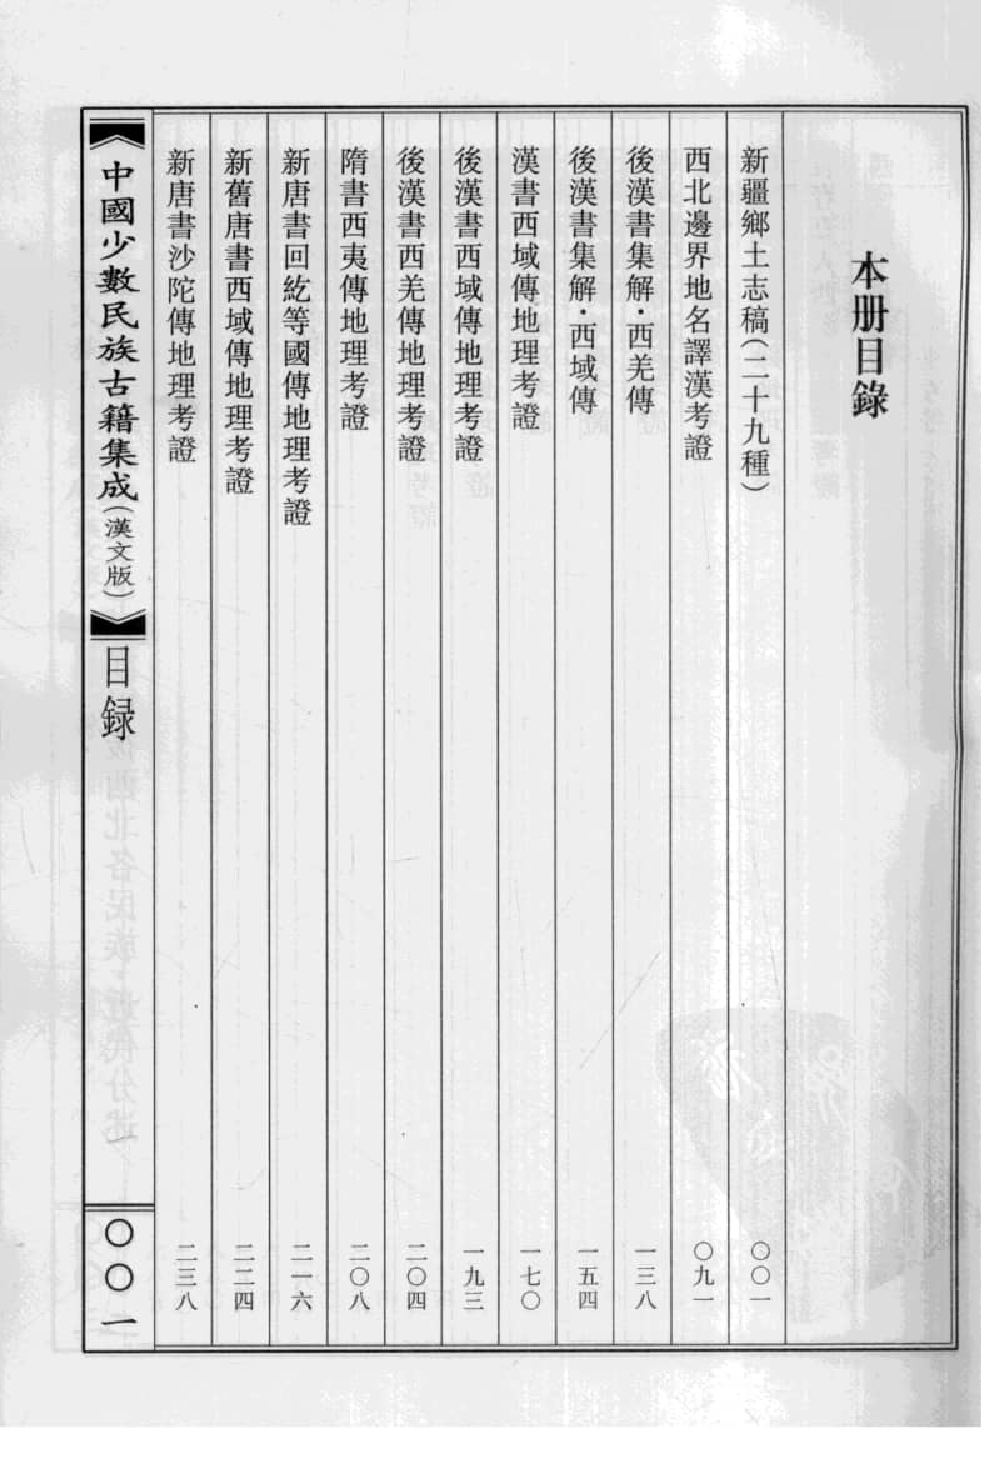 本册目錄
新疆鄉土志稿（二十九種） 〇〇一
西北邊界地名譯漢考證 〇九一
後漢書集解·西羌傳 一三八
後漢書集解·西域傳 一五四
漢書西域傳地理考證 一七〇
後漢書西域傳地理考證 一九三
後漢書西羌傳地理考證 二〇四
隋書西夷傳地理考證 二〇八
新唐書回紇等國傳地理考證 二一六
新舊唐書西域傳地理考證 二二四
新唐書沙陀傳地理考證 二三八
中國少數民族古籍集成（漢文版） 目録
〇〇一